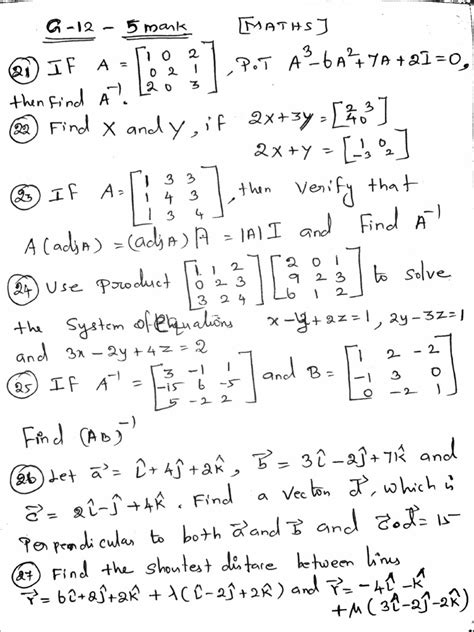 G-12 - 5 mark [MATHS]
(21) IF A = [1 0 2; 0 2 1; 2 0 3], P.T A³-6A²+7A+2I=0,
then find A⁻¹.
(22) Find X and Y, if 2X+3Y = [2 3; 4 0]
2X+Y = [1 0; -3 2]
(23) IF A = [1 3 3; 1 4 3; 1 3 4], then Verify that
A(adjA) = (adjA)A = |A|I and Find A⁻¹
(24) Use Product [1 1 2; 0 2 3; 3 2 4] [2 0 1; 9 2 3; 6 1 2] to solve
the System of Equations x-y+2z=1, 2y-3z=1
and 3x-2y+4z=2
(25) IF A⁻¹ = [3 -1 1; -15 6 -5; 5 -2 2] and B = [1 2 -2; -1 3 0; 0 -2 1]
Find (AB)⁻¹
(26) Let a⃗ = î+4ĵ+2k̂, b⃗ = 3î-2ĵ+7k̂ and
c⃗ = 2î-ĵ+4k̂. Find a vector d⃗, which is
Perpendicular to both a⃗ and b⃗ and c⃗.d⃗=15
(27) Find the shortest distace between lines
r⃗ = 6î+2ĵ+2k̂ + λ(î-2ĵ+2k̂) and r⃗ = -4î-k̂
+μ(3î-2ĵ-2k̂)